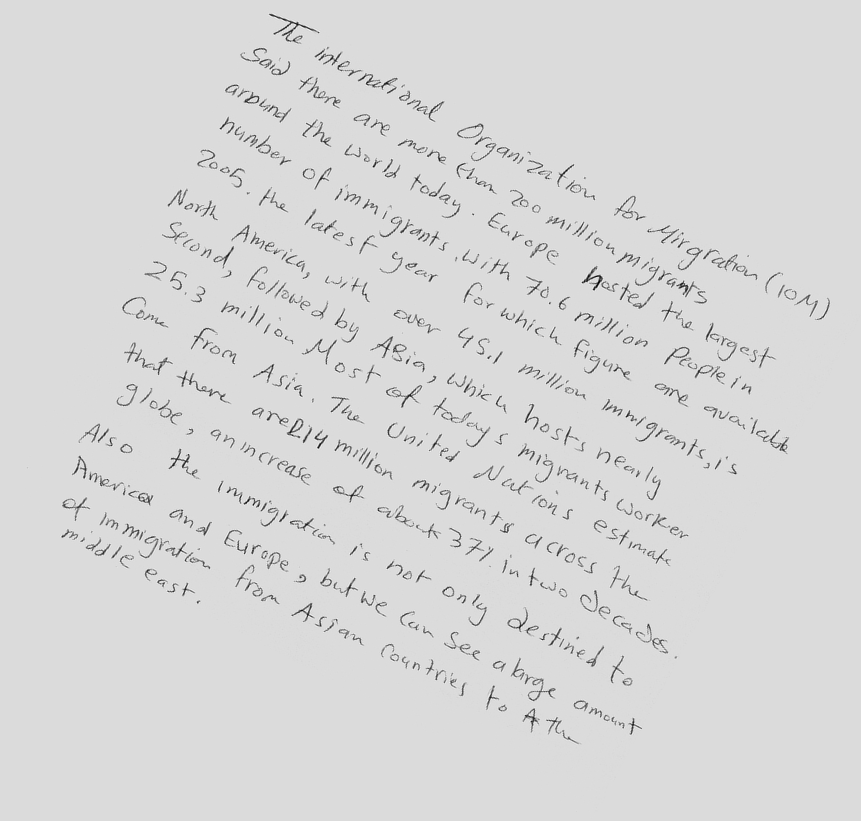 The international Organization for Mirgration (IOM)
Said there are more than 200 million migrants
around the world today. Europe hosted the largest
number of immigrants, with 70.6 million People in
2005. the latest year for which figure are available
North America, with over 45.1 million immigrants, is
Second, followed by ASia, which hosts nearly
25.3 million Most of today's migrants worker
Come from Asia. The United Nations estimate
that there are 214 million migrants across the
globe, an increase of about 37% in two decades.
Also the immigration is not only destined to
America and Europe, but we can see a large amount
of immigration from Asian Countries to the
middle east.